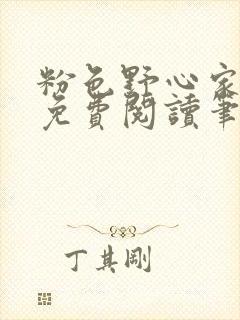 粉色野心家
免費閱讀筆
丁其剛